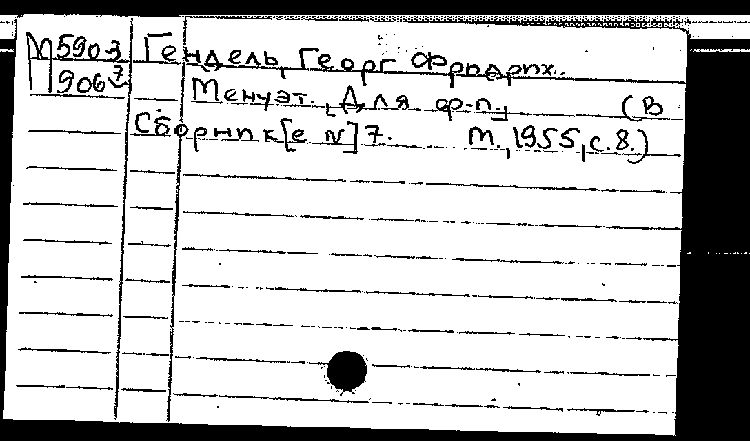 М5903 Гендель, Георг Фридрих.
П906⁷ Менуэт. [Для ф-п.] (В
Сборник[е №] 7. М., 1955, с. 8.)